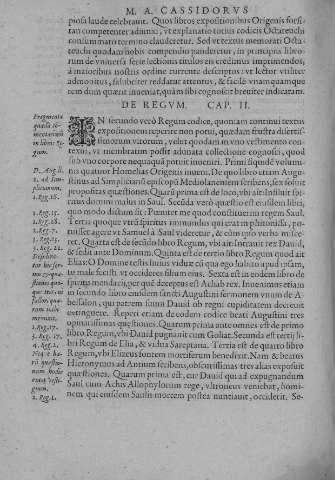 M. A. CASSIDORVS
piosa laude celebrarat. Quos libros expositionibus Origenis forsi-
tan competenter adiunxi, vt explanatio totius codicis Octateuchi
consummato termino clauderetur. Sed vt textus memorati Octa
teuchi quodam nobis compendio panderetur, in principiis libro-
rum de vniuersa serie lectionis titulos eis credimus imprimendos,
à maioribus nostris ordine currente descriptos: vt lector vtiliter
admonitus, salubriter reddatur attentus, & facilè vnamquamque
rem dum quærit inueniat, quam sibi cognoscit breuiter indicatam.
DE REGVM. CAP. II.
IN secundo verò Regum codice, quoniam continui textus
expositionem reperire non potui, quædam frusta disertis-
simorum virorum, velut quodam in vno vestimento con-
texui, vt membratim possit adunata collectione cognosci, quod
sub vno corpore nequaquam potuit inueniri. Primi siquidē volumi-
nis quatuor Homelias Origenis inueni. De quo libro etiam Augu-
stinus ad Simplicianū episcopū Mediolanensem scribens, sex soluit
propositas quæstiones. Quarū prima est de loco, vbi ait: Insiluit spi-
ritus domini malus in Saul. Secūda verò quæstio est eiusdem libri,
quo modo dictum sit: Pœnitet me quod constituerim regem Saul.
Tertia quoque vtrū spiritus immundus qui erat in phitonissa, po-
tuisset agere vt Samuel à Saul videretur, & cum ipso verba misce-
ret. Quarta est de secūdo libro Regum, vbi ait: Intrauit rex Dauid,
& sedit ante Dominum. Quinta est de tertio libro Regum quod ait
Elias: O Domine testis huius viduæ cū qua ego habito apud ipsam,
tu male fecisti vt occideres filium eius. Sexta est in eodem libro de
spiritu mendacij, per quē deceptus est Achab rex. Inuenimus etiam
in secundo libro eiusdem sancti Augustini sermonem vnum de A-
besalon, qui patrem suum Dauid ob regni cupiditatem decreuit
extinguere. Reperi etiam de eodem codice beati Augustini tres
opinatissimas quæstiones. Quarum prima ante omnes est de primo
libro Regum, vbi Dauid pugnauit cum Goliat. Secunda est tertij li-
bri Regum de Elia, & vidua Sareptana. Tertia est de quarto libro
Regum, vbi Elizeus fontem mortiferum benedixit. Nam & beatus
Hieronymus ad Antum scribens, obscurissimas tres alias exposuit
quæstiones. Quarum prima est, cur Dauid qui ad expugnandum
Saul cum Achis Allophylorum rege, vltroneus veniebat, homi-
nem qui eiusdem Saulis mortem postea nuntiauit, occiderit. Se-